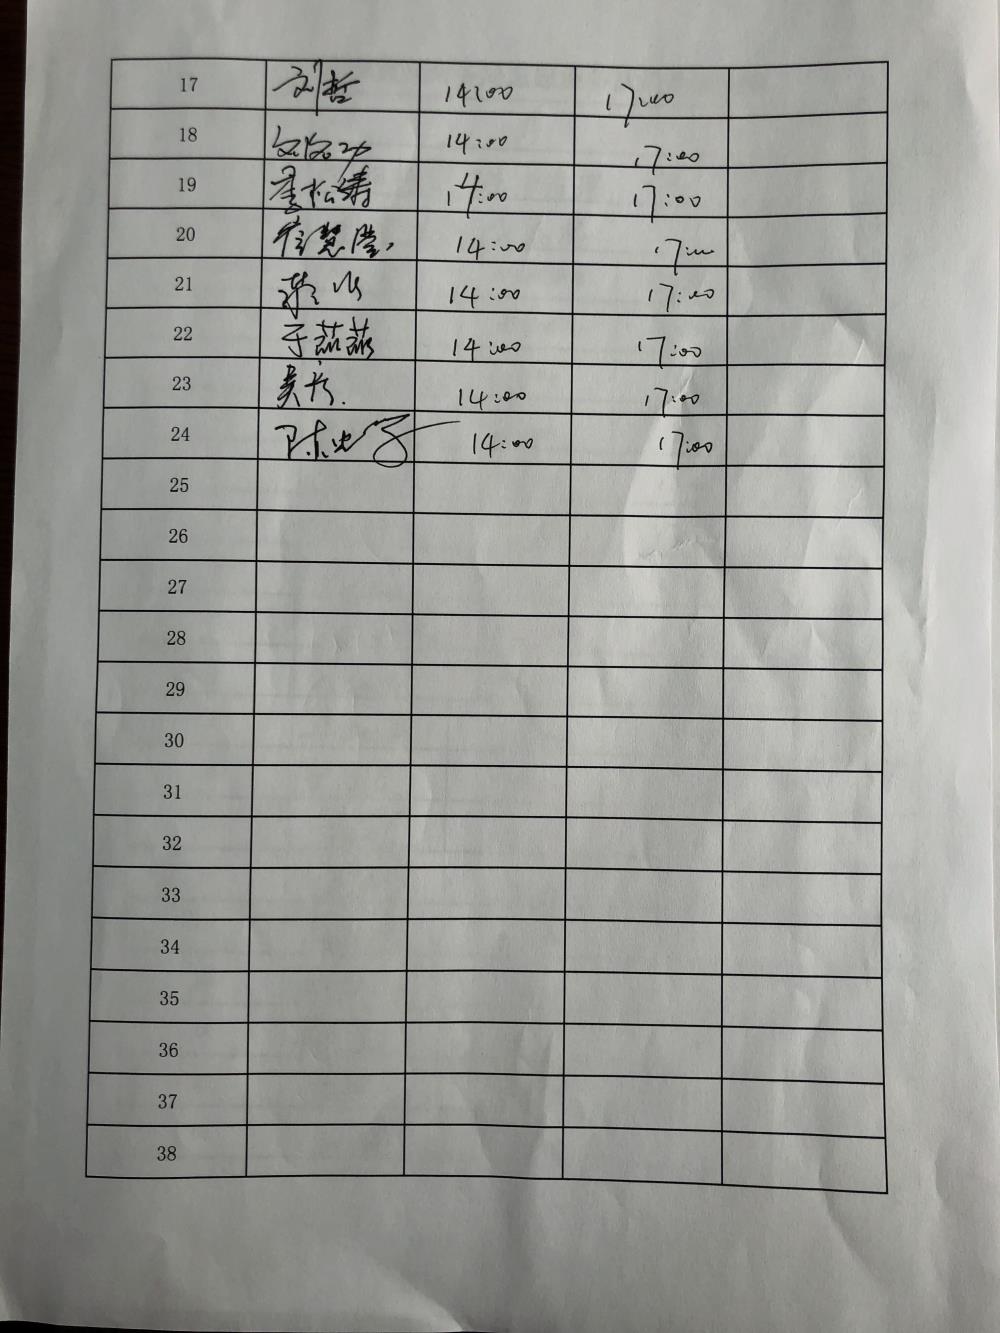 17 刘哲 14:00 17:00
18 14:00 17:00
19 李松涛 14:00 17:00
20 14:00 17:00
21 14:00 17:00
22 于茹茹 14:00 17:00
23 14:00 17:00
24 14:00 17:00
25
26
27
28
29
30
31
32
33
34
35
36
37
38